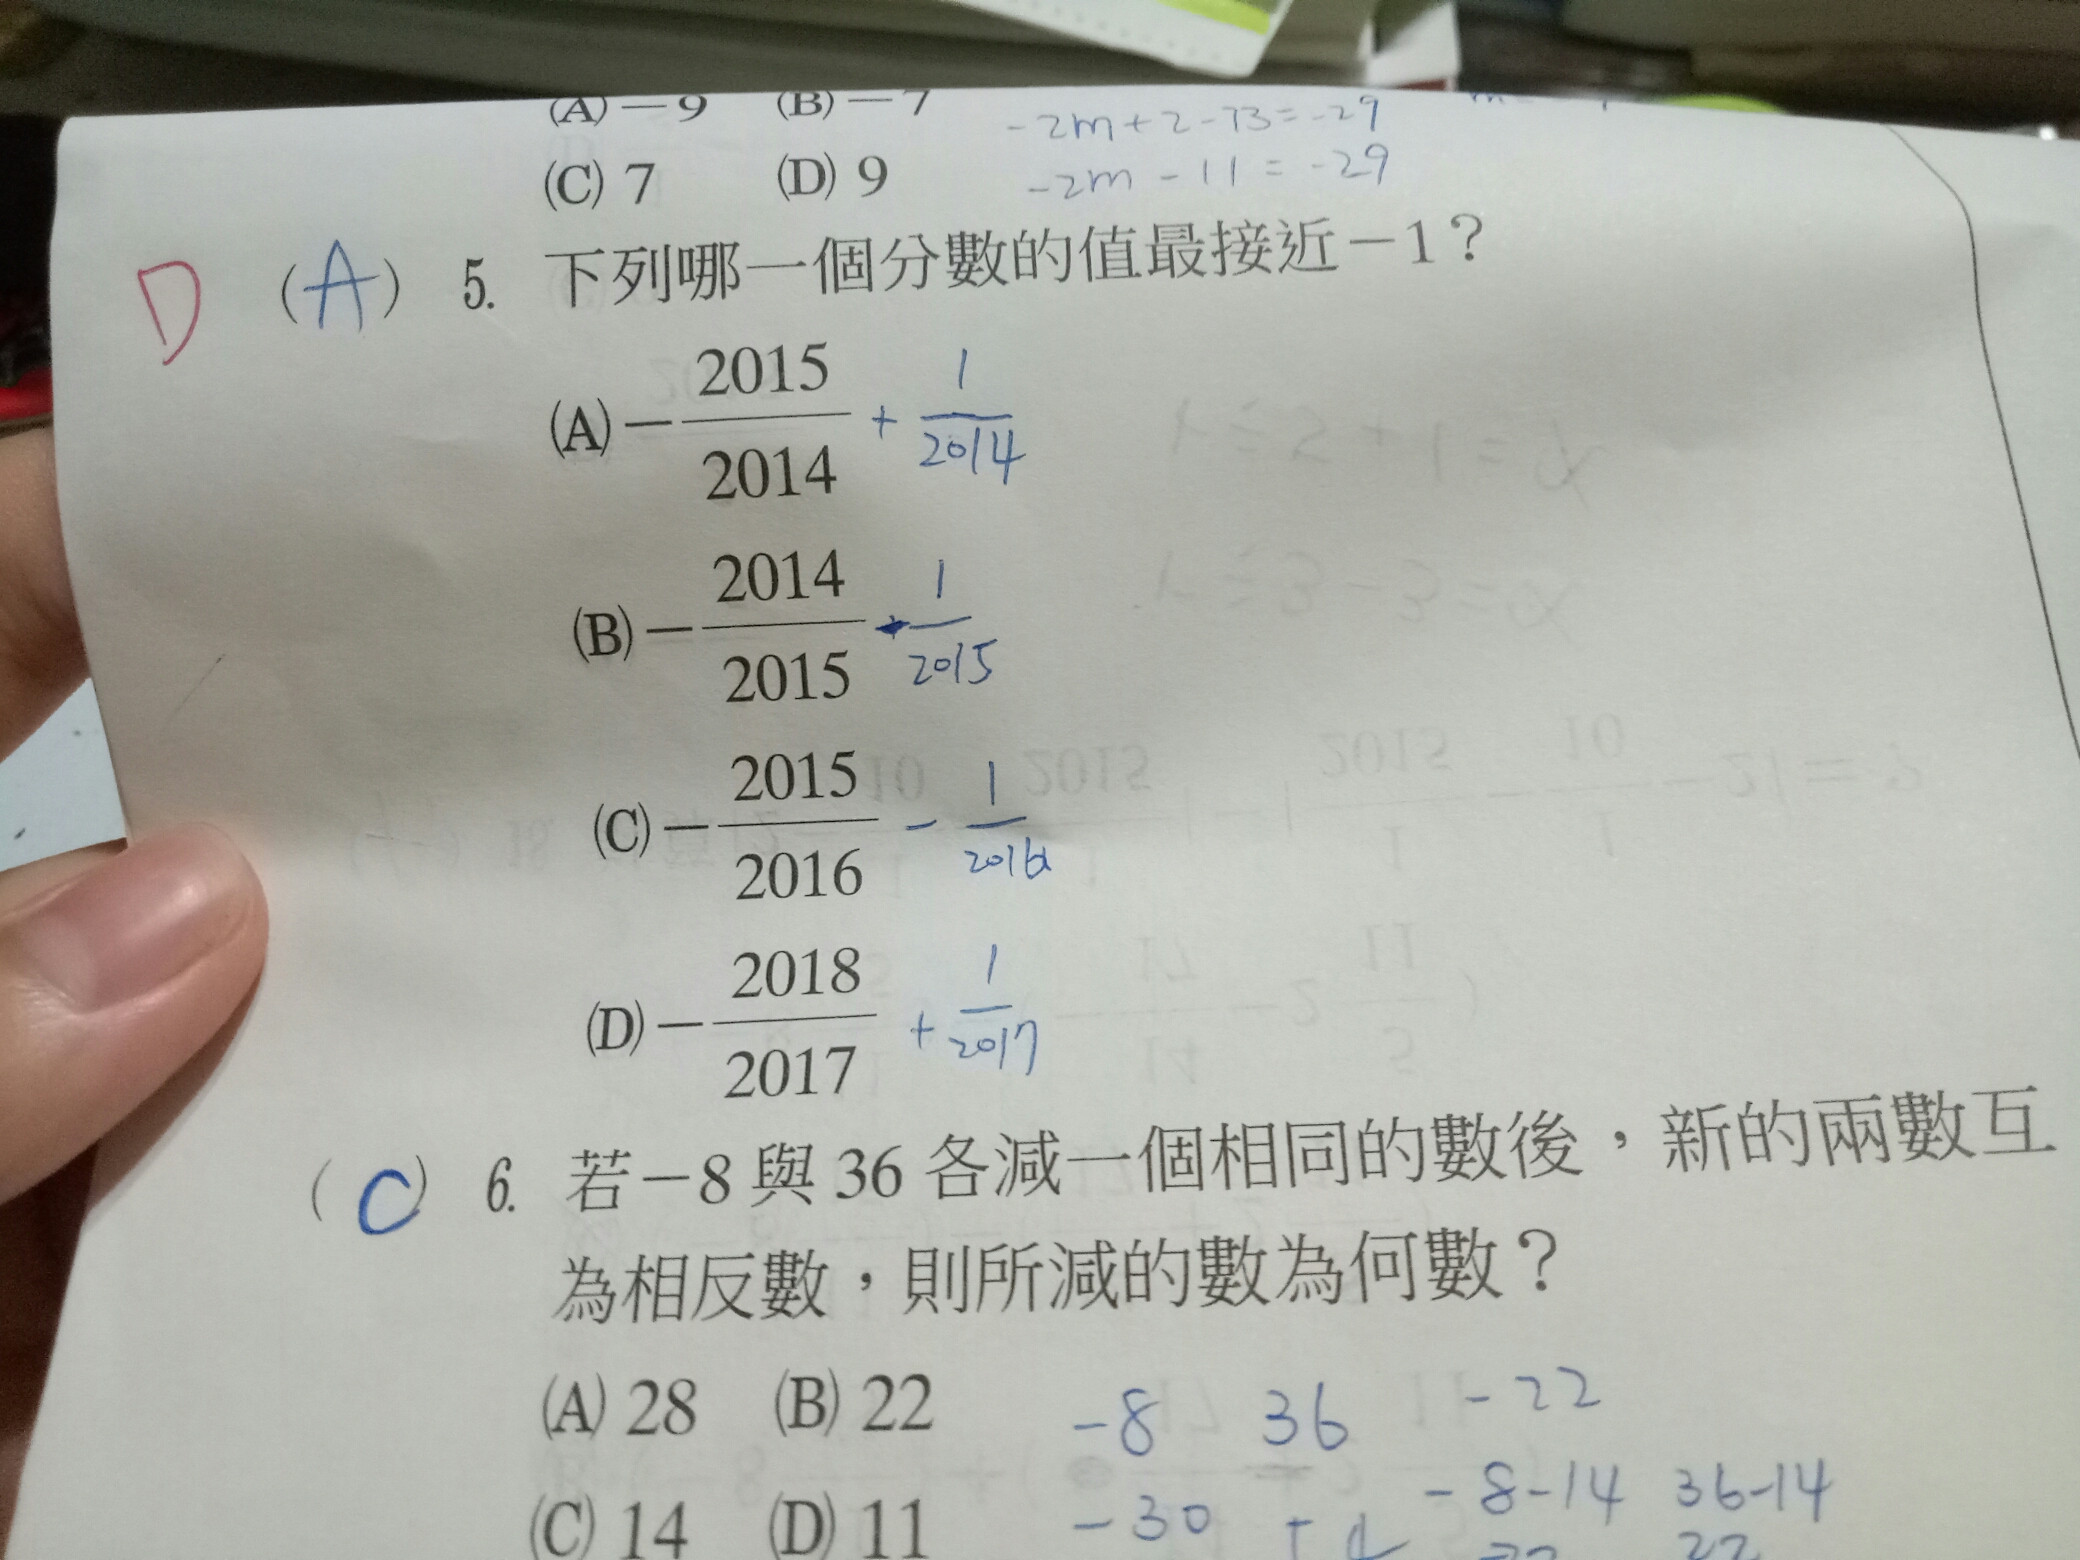 (A) －9 (B) －7 -2m+2-13=-29
(C) 7 (D) 9 -2m-11=-29
D (A) 5. 下列哪一個分數的值最接近－1？
(A) － 2015/2014 + 1/2014
(B) － 2014/2015 - 1/2015
(C) － 2015/2016 - 1/2016
(D) － 2018/2017 + 1/2017
(C) 6. 若－8 與 36 各減一個相同的數後，新的兩數互
為相反數，則所減的數為何數？
(A) 28 (B) 22 -8 36 -22
(C) 14 (D) 11 -30 -8-14 36-14
22